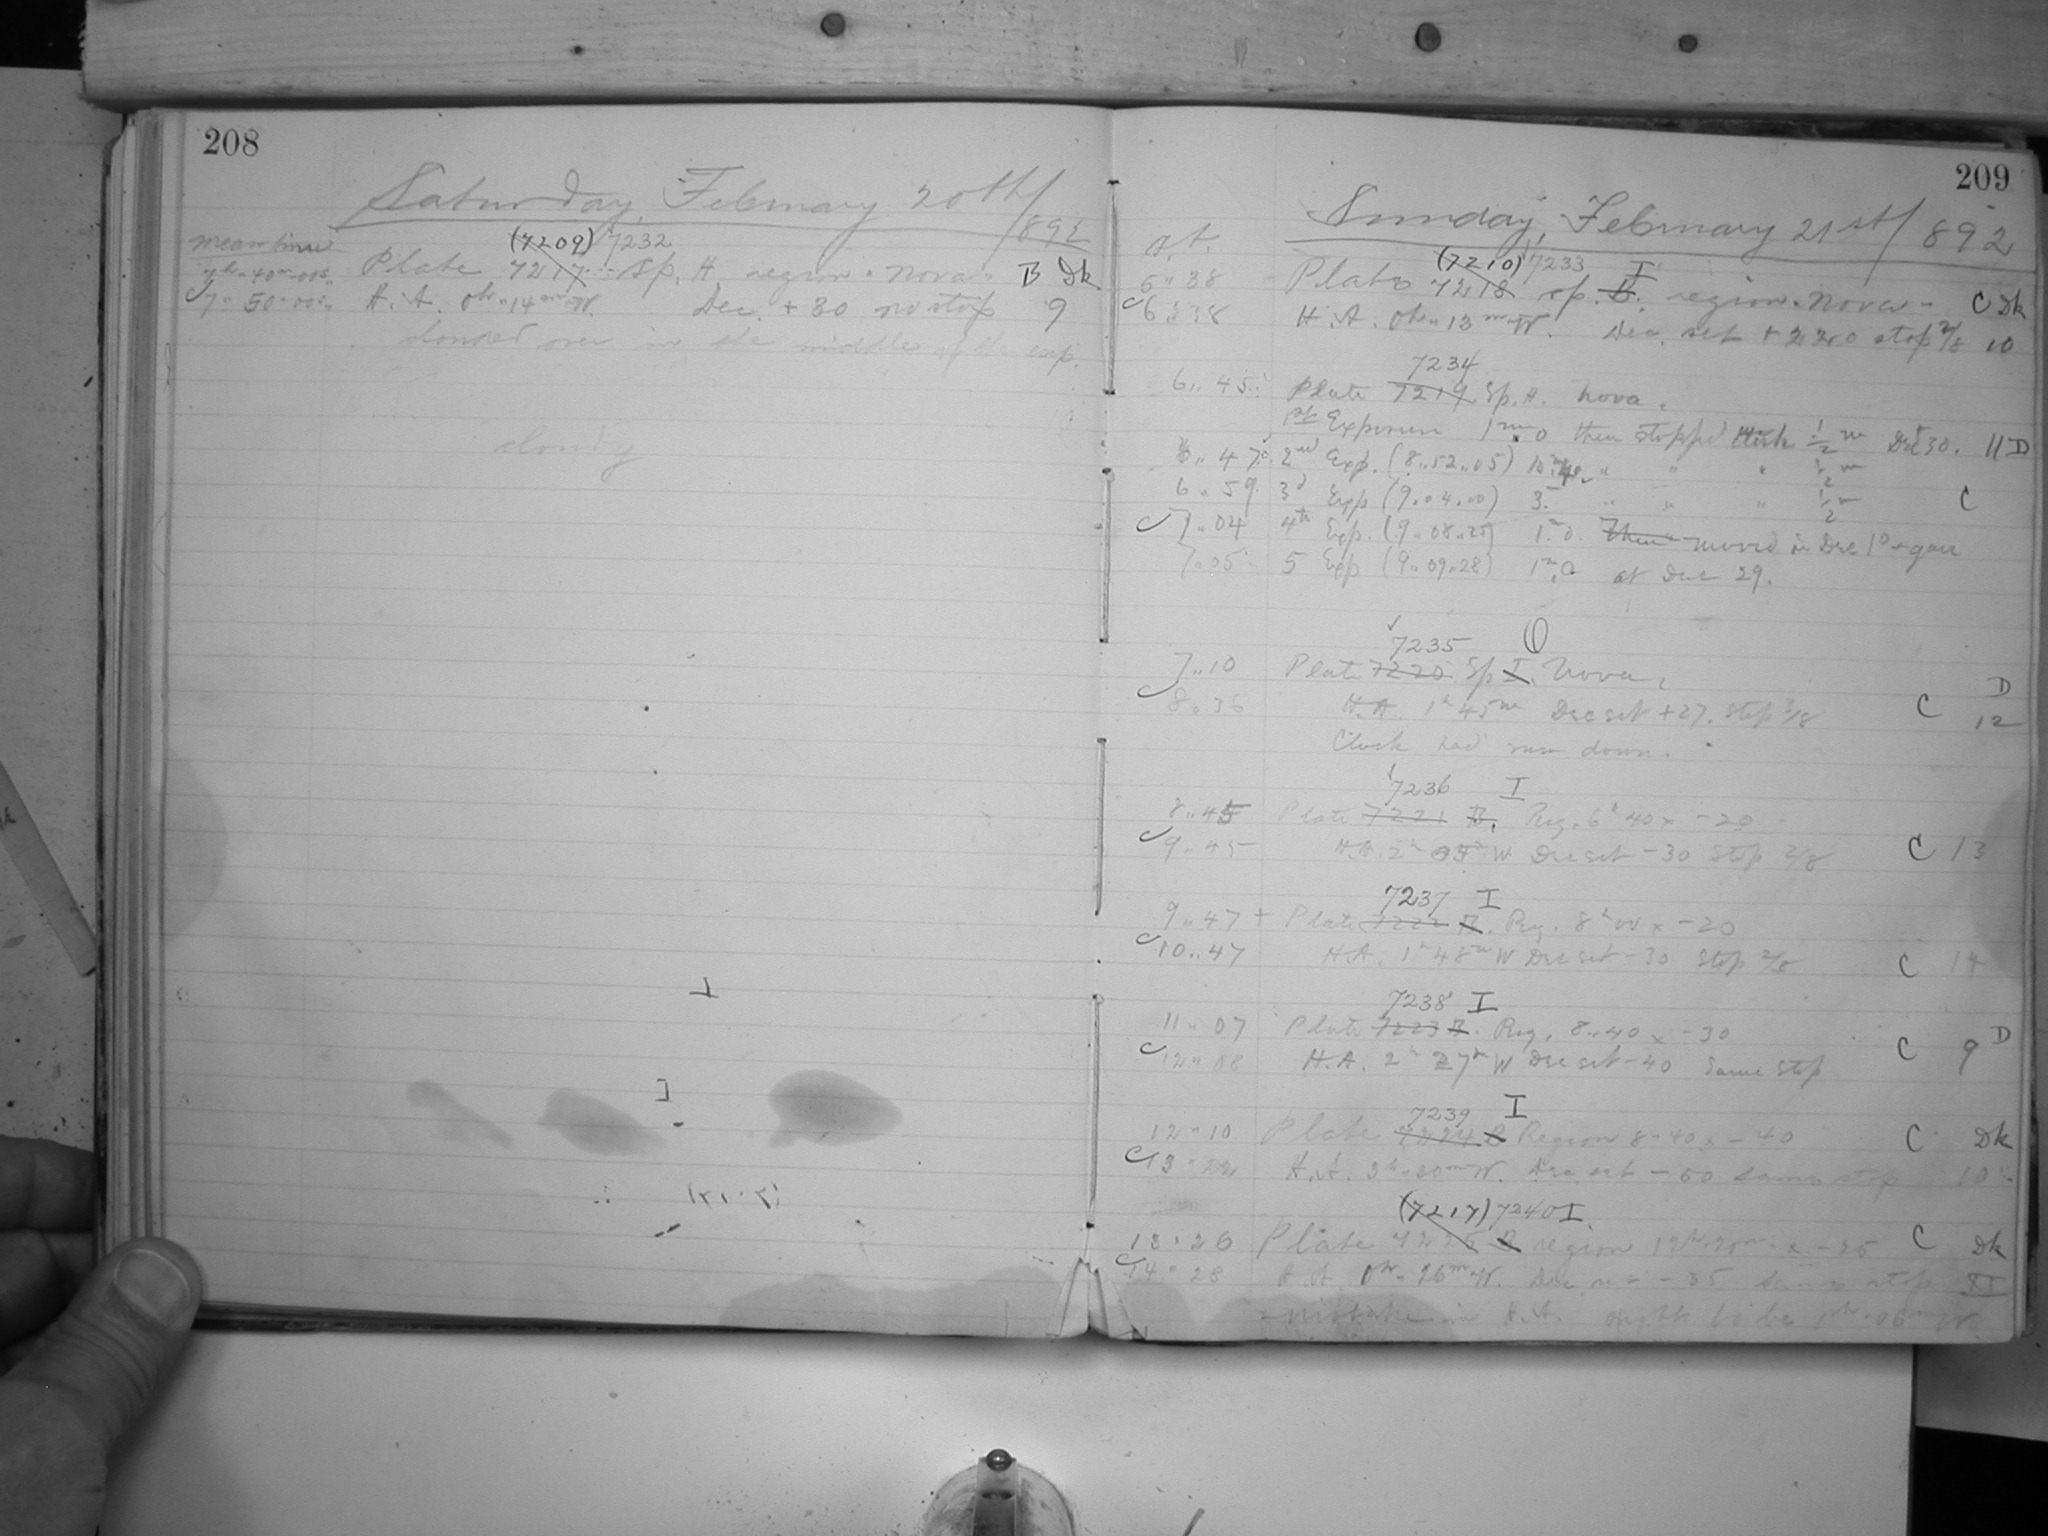 208
Saturday, February 20th/892
mean time
(7209) 7232
7h 40m 00s Plate 7217 Sp. H region "Nova" B Dk
7 50 00 H. A. 0h 14m W. Dec. +30 no stop 9
clouded over in the middle of the exp.
cloudy
209
Sunday, February 21st/892
(7210) 7233 I
5 38 Plate 7218 sp. B. region "Nova" C Dk
6 38 H. A. 0h 13m W. Dec. set +22.0 stop 2/8 10
7234
6 45 Plate 7219 Sp. H. Nova.
1st Exposure 1m.0 then stopped clock 1/2 m Dec 30. 11 D
6 47 2nd Exp. (8 52 05) 10m " " " 1/2 m
6 59 3d Exp (9 04 00) 3. " " " 1/2 m C
7 04 4th Exp. (9 08 25) 1m.0. Then moved in Dec 1° + gave
7 05 5 Exp (9 09 28) 1m.0 at Dec 29.
7235
7 10 Plate 7220 Sp I. Nova.
D
8 36 H.A. 1h 45m Dec set +27. Stop 3/8 C 12
Clock had run down.
7236 I
8 45 Plate 7221 B. Reg. 6h 40 x -20
9 45 H.A. 2h W Dec set -30 Stop 2/8 C 13
7237 I
9 47 + Plate 7222 B. Reg. 8h 00 x -20
10 47 H.A. 1h 48m W Dec set -30 Stop 2/8 C 14
7238 I
11 07 Plate 7223 B. Reg. 8 40 x -30
12 08 H.A. 2h 27m W Dec set -40 Same stop C 9 D
7239 I
12 10 Plate 7224 B Region 8 40 x -40 C Dk
13 22 H.A. 3h 20m W. Dec set -50 same stop 10
(7217) 7240 I.
13 26 Plate 7225 B region 12h 20m x -25 C Dk
14 28 H.A. 0h 26m W. Dec set -35 same stop XI
mistake in H.A. ought to be 1h 06m W.